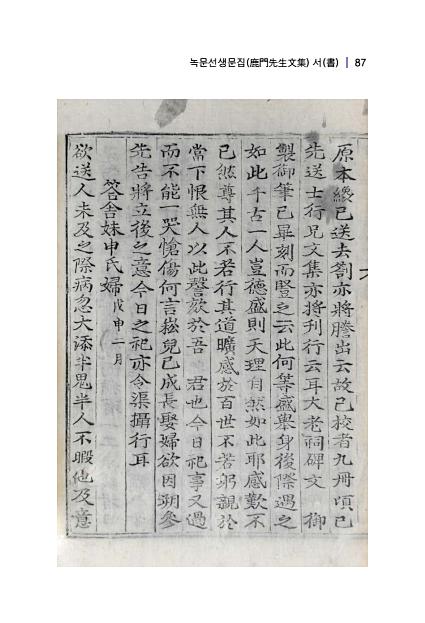 녹문선생문집(鹿門先生文集) 서(書) | 87
原本纔已送去劄亦將謄出云故已校者九冊頃已
先送士行兄文集亦將刊行云耳大老祠碑文 御
製御筆已畢刻而豎之云此何等盛擧身後際遇之
如此千古一人豈德盛則天理自然如此耶感歎不
已然尊其人不若行其道曠感於百世不若躬親於
當下恨無人以此謦欬於吾 君也今日祀事又過
而不能一哭愴傷何言崧兒已成長娶婦欲因朔參
先告將立後之意今日之祀亦令渠攝行耳
答舍妹申氏婦 戊申一月
欲送人未及之際病忽大添半鬼半人不暇他及意